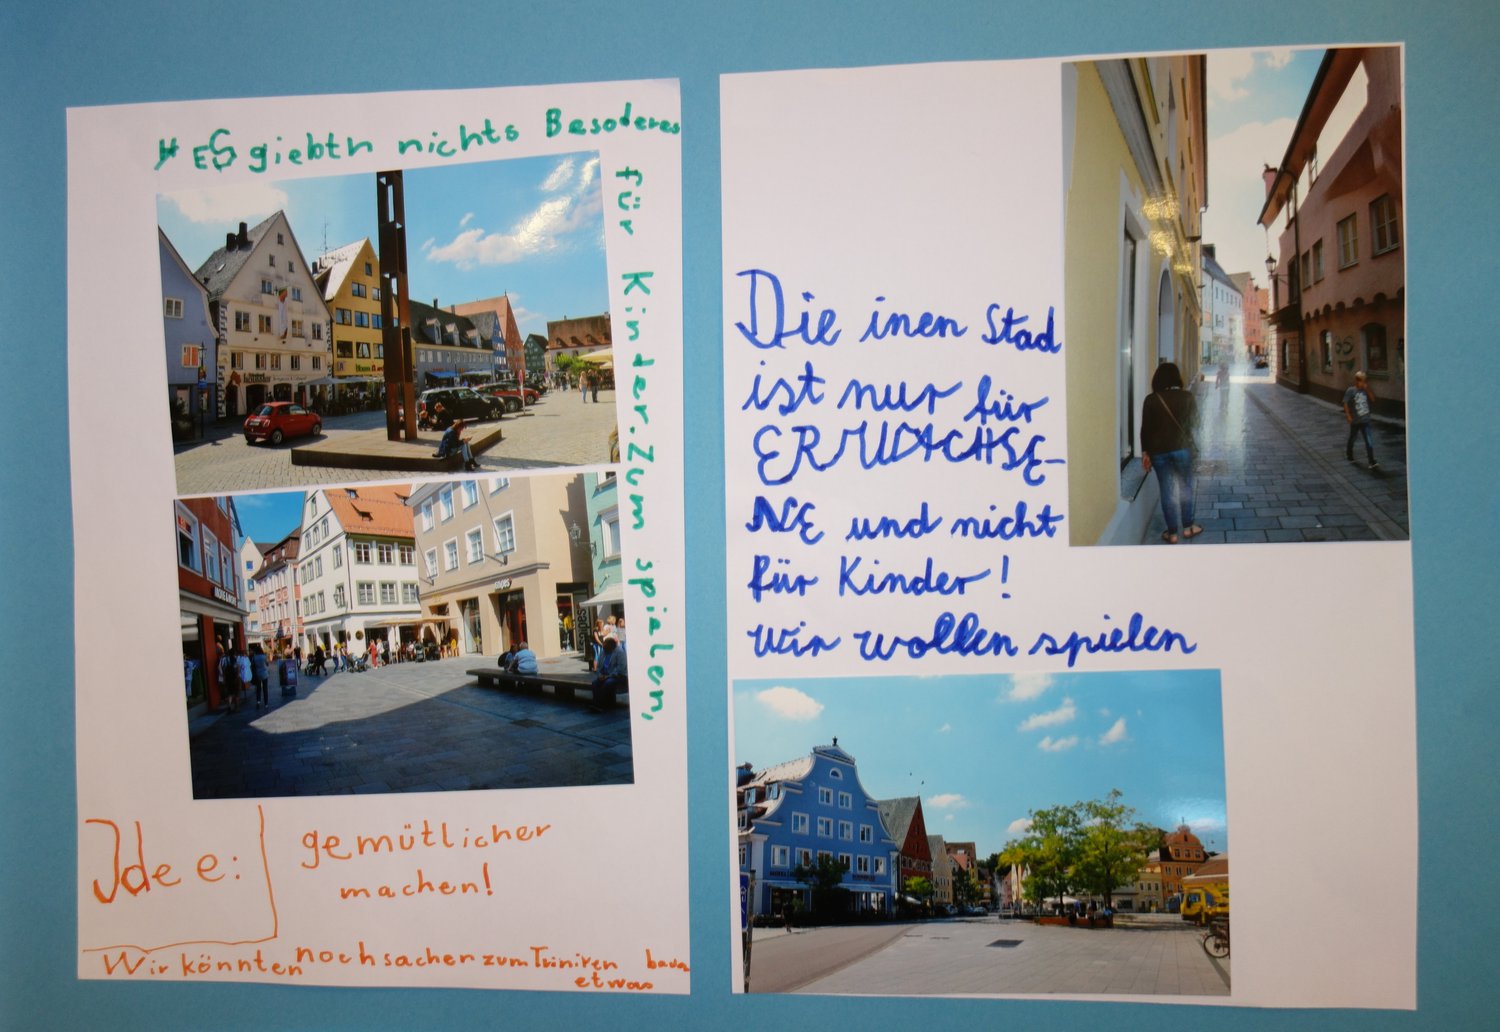 ES giebtn nichts Besoderes
für Kinder. Zum spialen,
Idee:
gemütlicher
machen!
Wir könnten noch sachen zum Triniren
etwas
Die inen Stad
ist nur für
ERWACHSE-
NE und nicht
für Kinder!
Wir wollen spielen